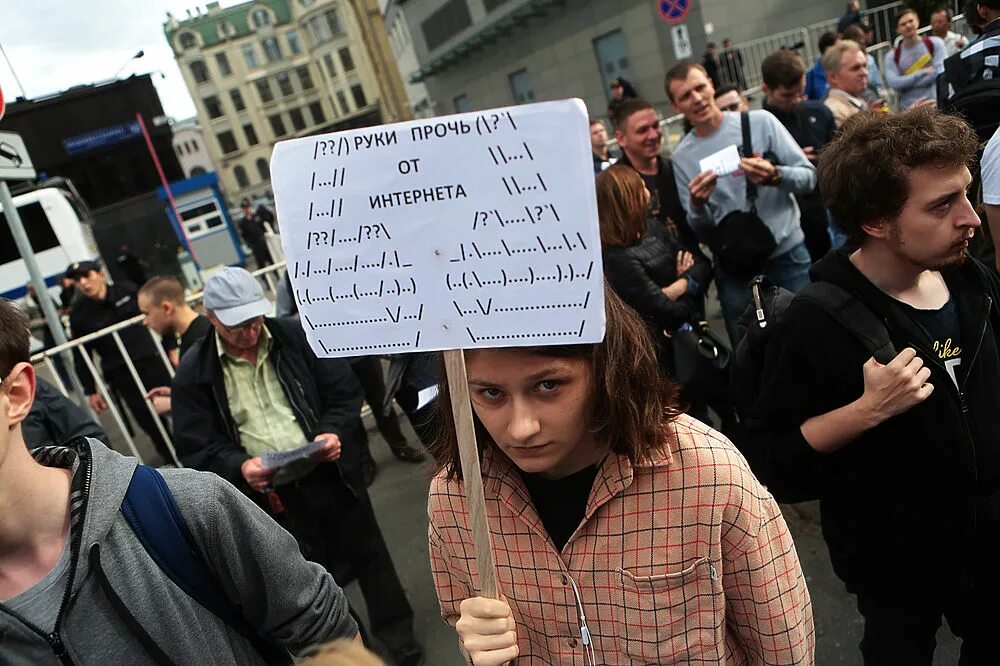 |??/) РУКИ ПРОЧЬ (\?`\
|...|| ОТ \\|...\
|...|| ИНТЕРНЕТА \\|...\
|??|/....|??\ /?`\....\?`\
|.|...|..../...|.|_ _|.\....\.....\...\.\
|.(....(....(..../..)..) (..(.\....)....)....)..)../
\..............\/..../ \....\/................/
\.................../ \...................../
like